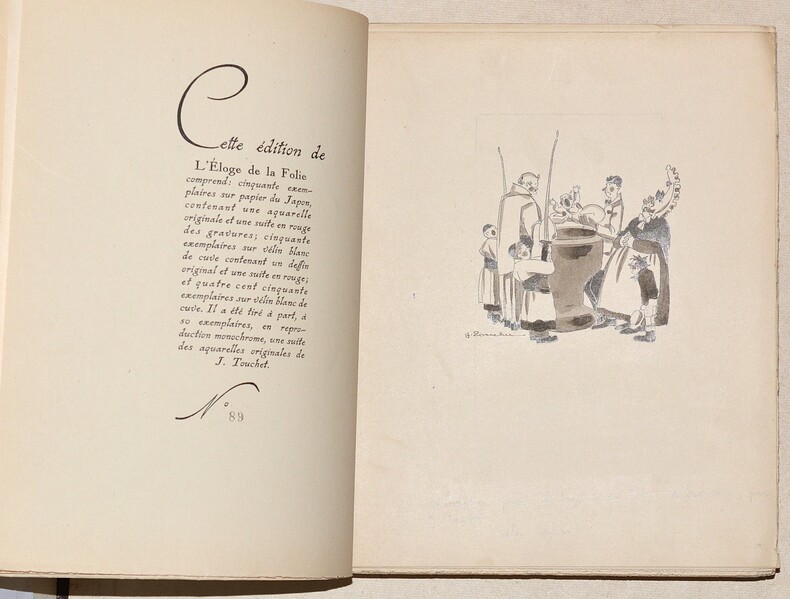 Cette édition de
L'Éloge de la Folie
comprend: cinquante exem-
plaires sur papier du Japon,
contenant une aquarelle
originale et une suite en rouge
des gravures; cinquante
exemplaires sur vélin blanc
de cuve contenant un dessin
original et une suite en rouge;
et quatre cent cinquante
exemplaires sur vélin blanc de
cuve. Il a été tiré à part, à
50 exemplaires, en repro-
duction monochrome, une suite
des aquarelles originales de
J. Touchet.
N° 89